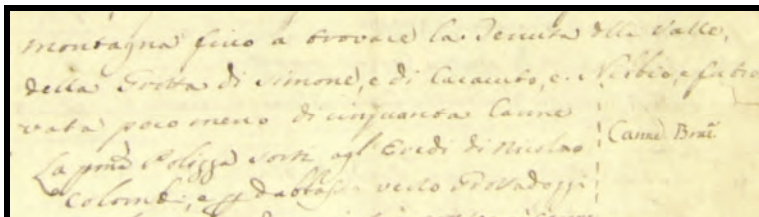 montagna fino a trovare la Tenuta della Valle,
della Grotta di Simone, e di Cacamito, e Nibbio, e fu tro
vata poco meno di cinquanta Canne
Canne
La pma Polizza sortì agl'Eredi di Nicolao
Colombi, e p da basso verso Grottadozzi